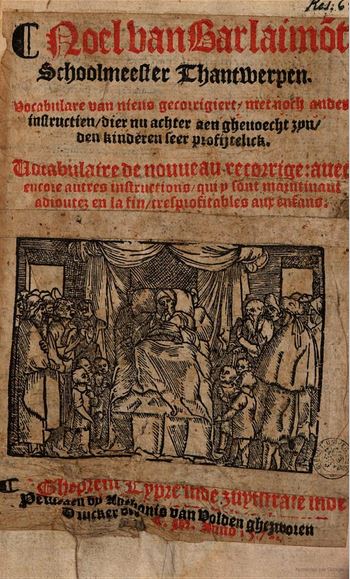 Res: 6
Noel van Barlaimōt
Schoolmeester Thantwerpen.
Vocabulare van nieus gecorrigiert/ met noch ander
instructien/ dier nu achter aen ghevoecht zyn/
den kinderen seer profijtelick.
Vocabulaire de nouveau recorrige: avec
encore autres instructions/ qui y sont maintinant
adioutez en la fin/ tresprofitables aux enfans.
Ypre inde zuytstrate inde
Drucker van Volden ghezworen